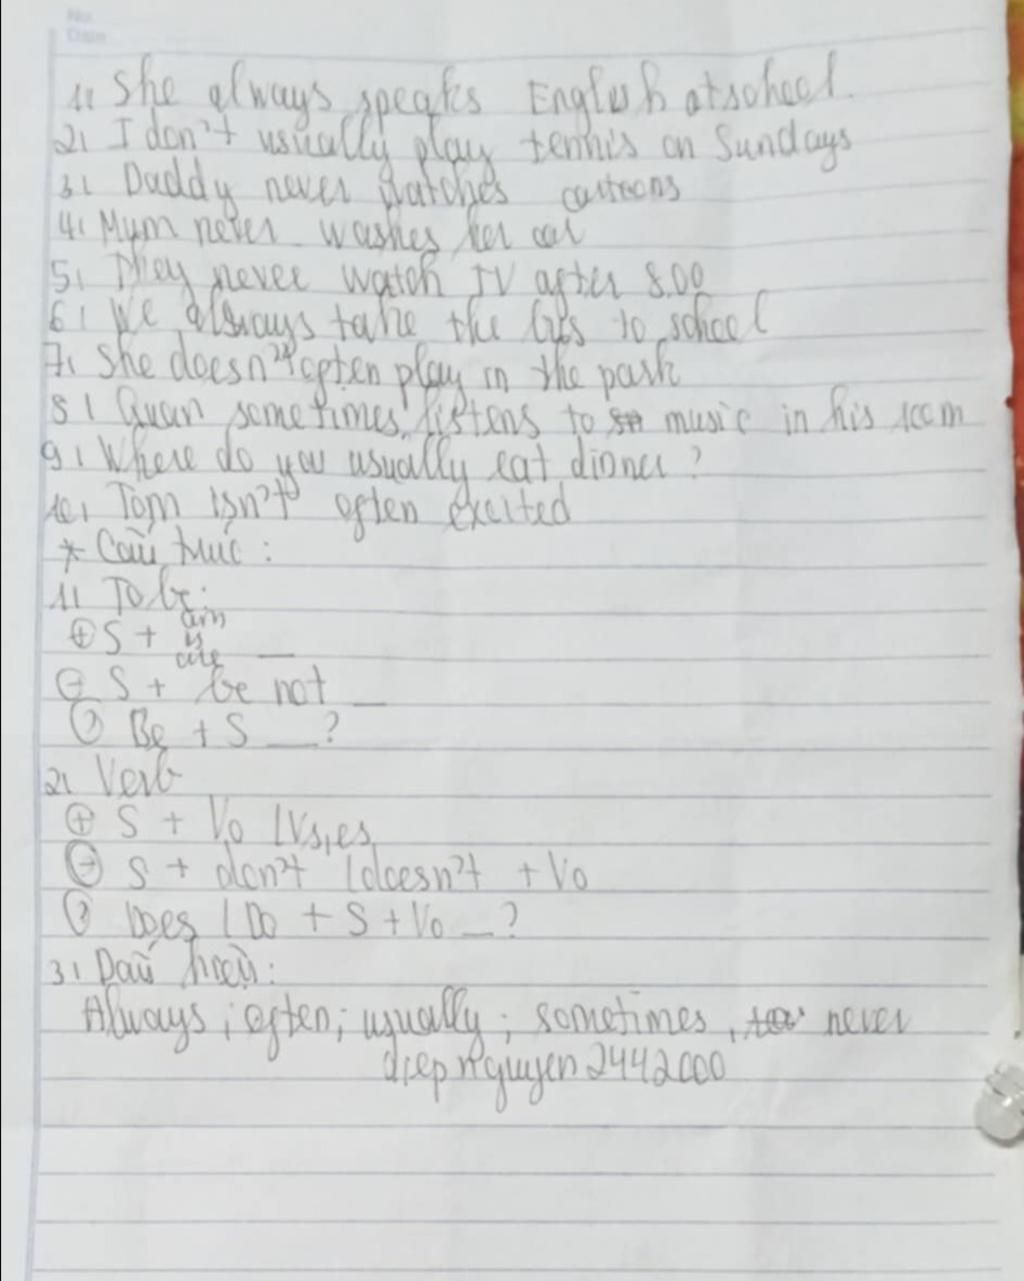 No.
Date
1, She always speaks English at school.
2, I don't usually play tennis on Sundays
3, Daddy never watches cartoons
4, Mum never washes her car
5, They never watch TV after 8.00
6, We always take the bus to school
7, She doesn't often play in the park
8, Quan sometimes listens to music in his room
9, Where do you usually eat dinner?
10, Tom isn't often excited
* Cấu trúc:
1, To be:
am
⊕ S + is __
are
⊖ S + be not __
? Be + S __?
2, Verb
⊕ S + Vo / Vs,es
⊖ S + don't / doesn't + Vo
? Does / Do + S + Vo __?
3, Dấu hiệu:
Always; often; usually; sometimes, never
diepnguyen2442000